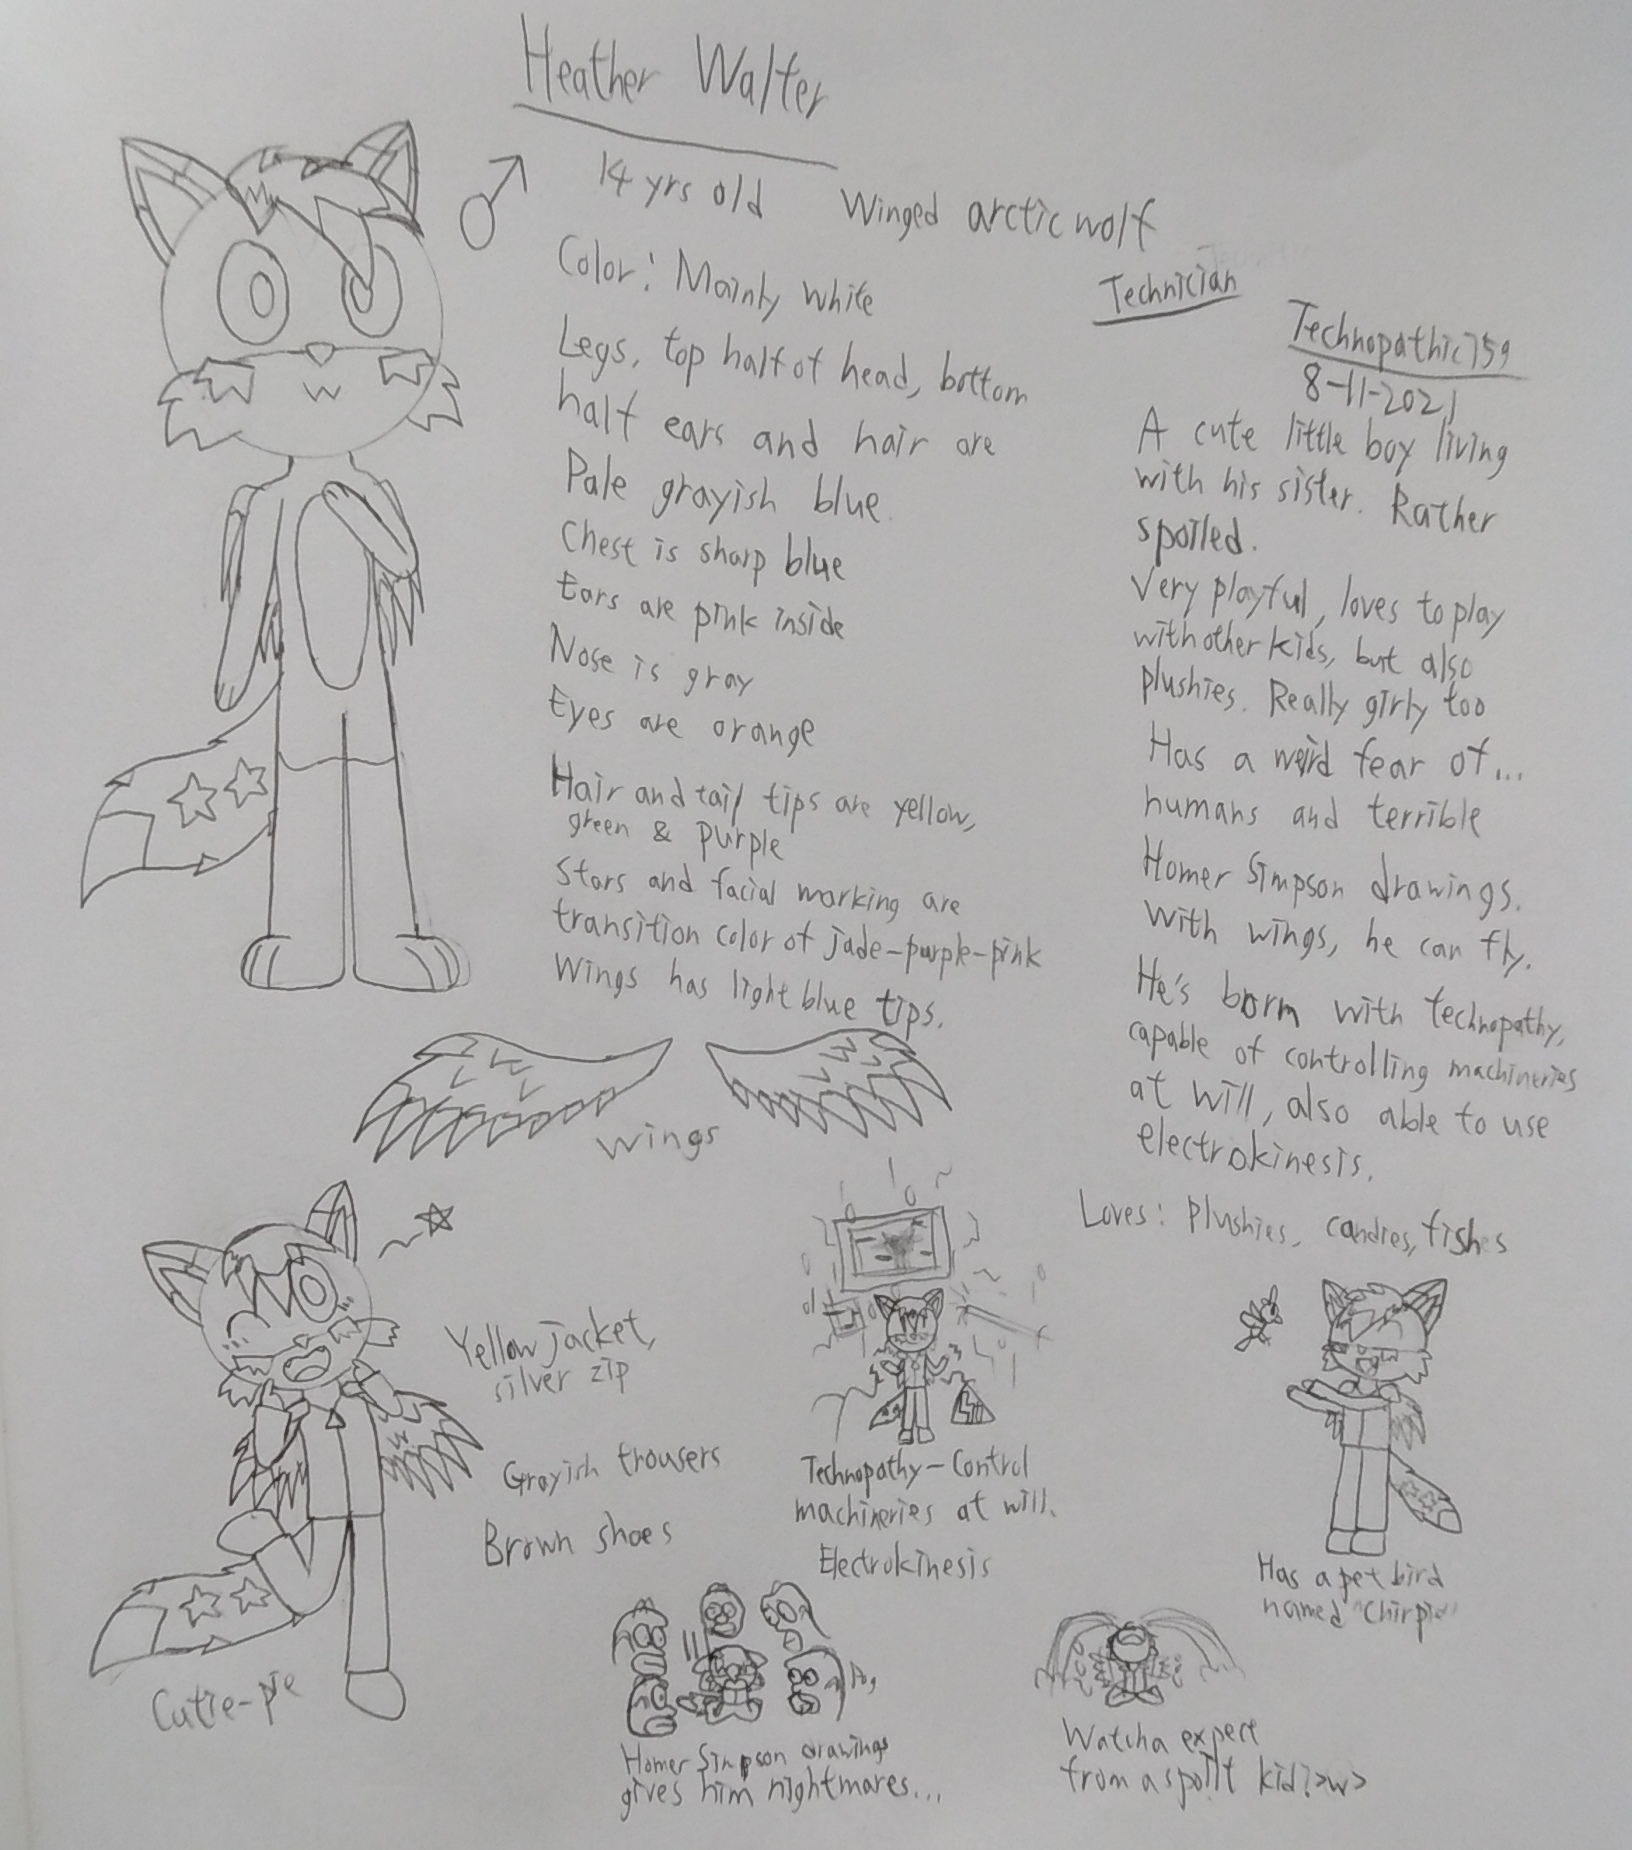 Heather Walter
14 yrs old Winged arctic wolf
Color: Mainly white
Legs, top half of head, bottom
half ears and hair are
Pale grayish blue.
Chest is sharp blue
Ears are pink inside
Nose is gray
Eyes are orange
Hair and tail tips are yellow,
green & purple
Stars and facial marking are
transition color of jade-purple-pink
Wings has light blue tips.
Wings
Technician
Technopathic759
8-11-2021
A cute little boy living
with his sister. Rather
spoiled.
Very playful, loves to play
with other kids, but also
plushies. Really girly too
Has a weird fear of...
humans and terrible
Homer Simpson drawings.
With wings, he can fly.
He's born with technopathy,
capable of controlling machineries
at will, also able to use
electrokinesis.
Loves: Plushies, candies, fishes
Yellow jacket,
silver zip
Grayish trousers
Brown shoes
Cutie-pie
Technopathy-Control
machineries at will.
Electrokinesis
Has a pet bird
named "Chirpie"
Homer Simpson drawings
gives him nightmares...
Watcha expect
from a spoilt kid?>w>